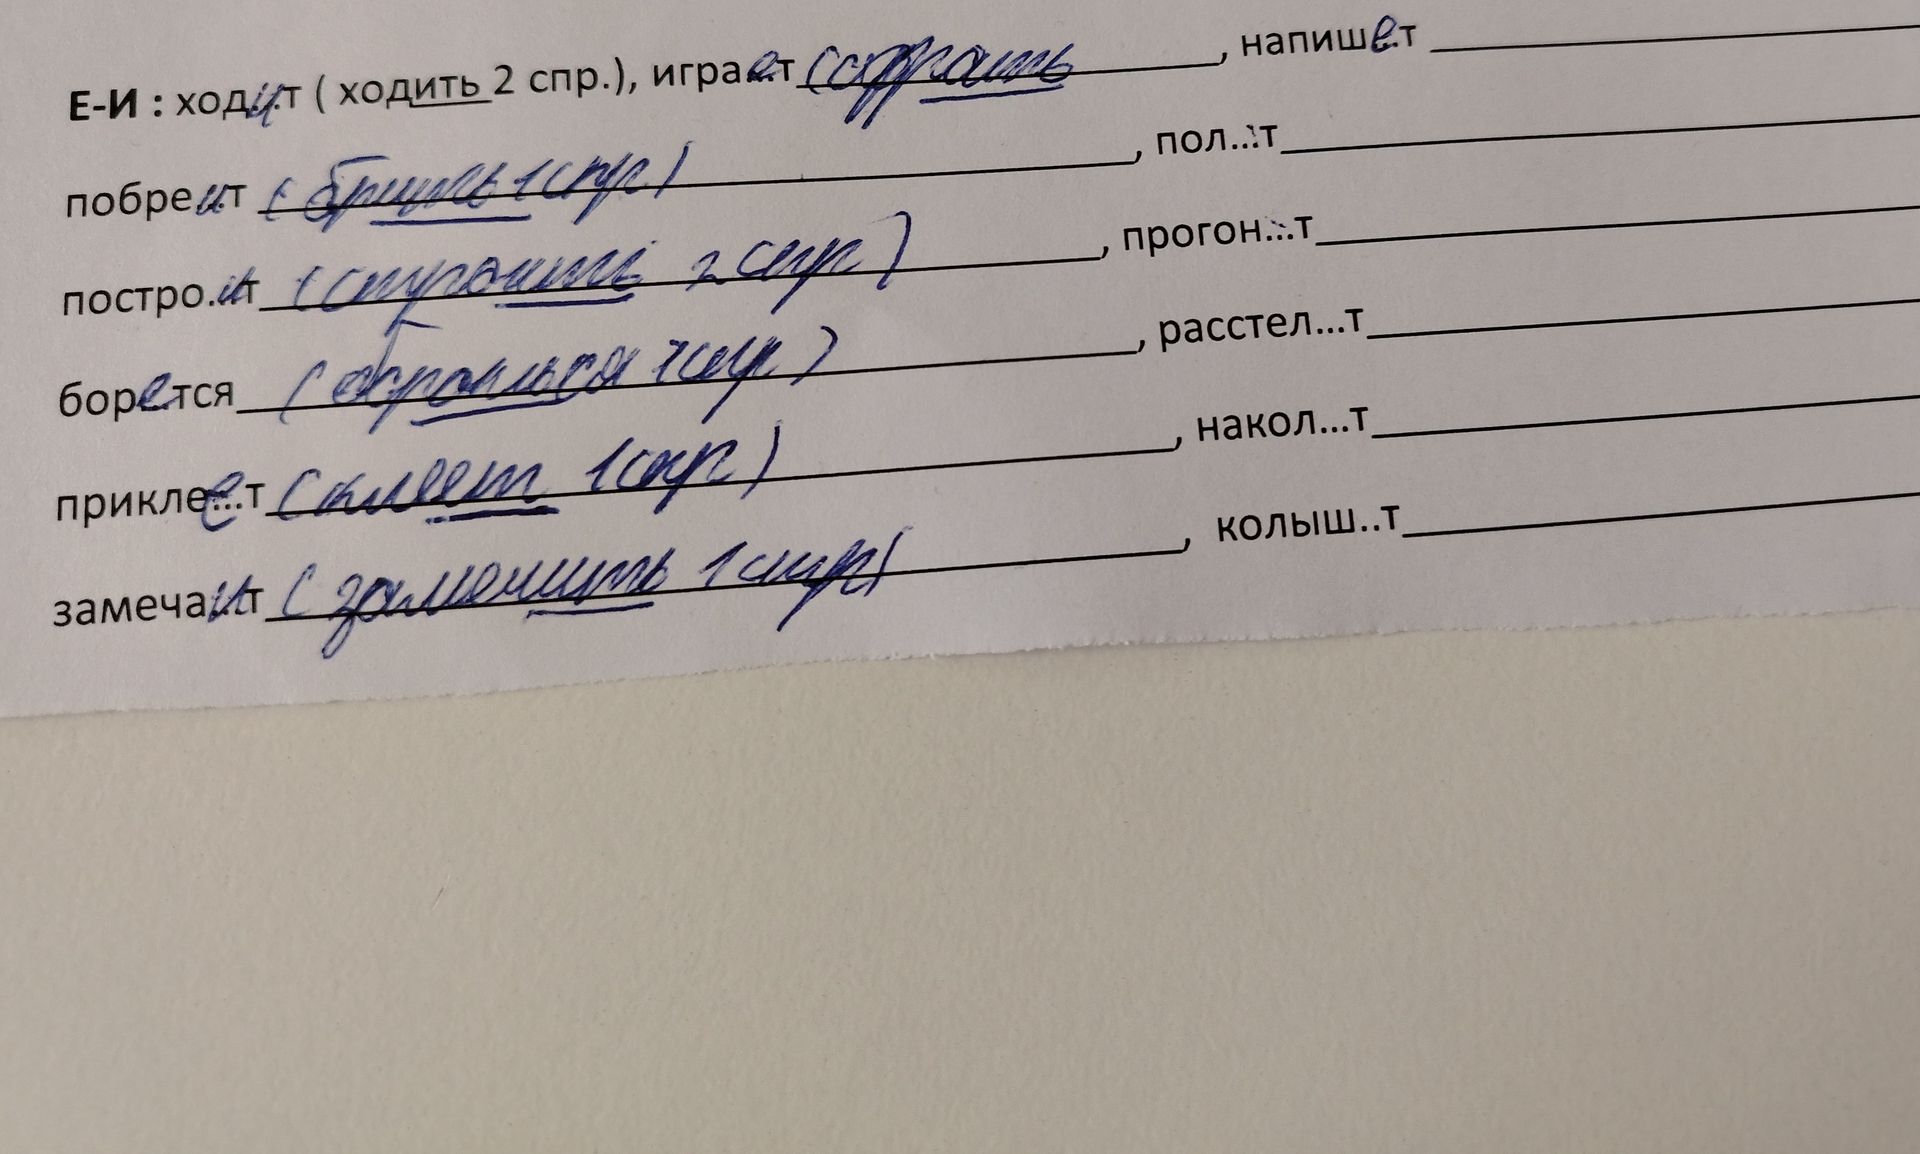 Е-И : ходит ( ходить 2 спр.), играет, напишет
побреит (брить 1 спр), пол...т
построит (строить 2 спр), прогон...т
борется ( 1 спр), расстел...т
приклеет (клеет 1 спр), накол...т
замечаит (замечить 1 спр), колыш..т